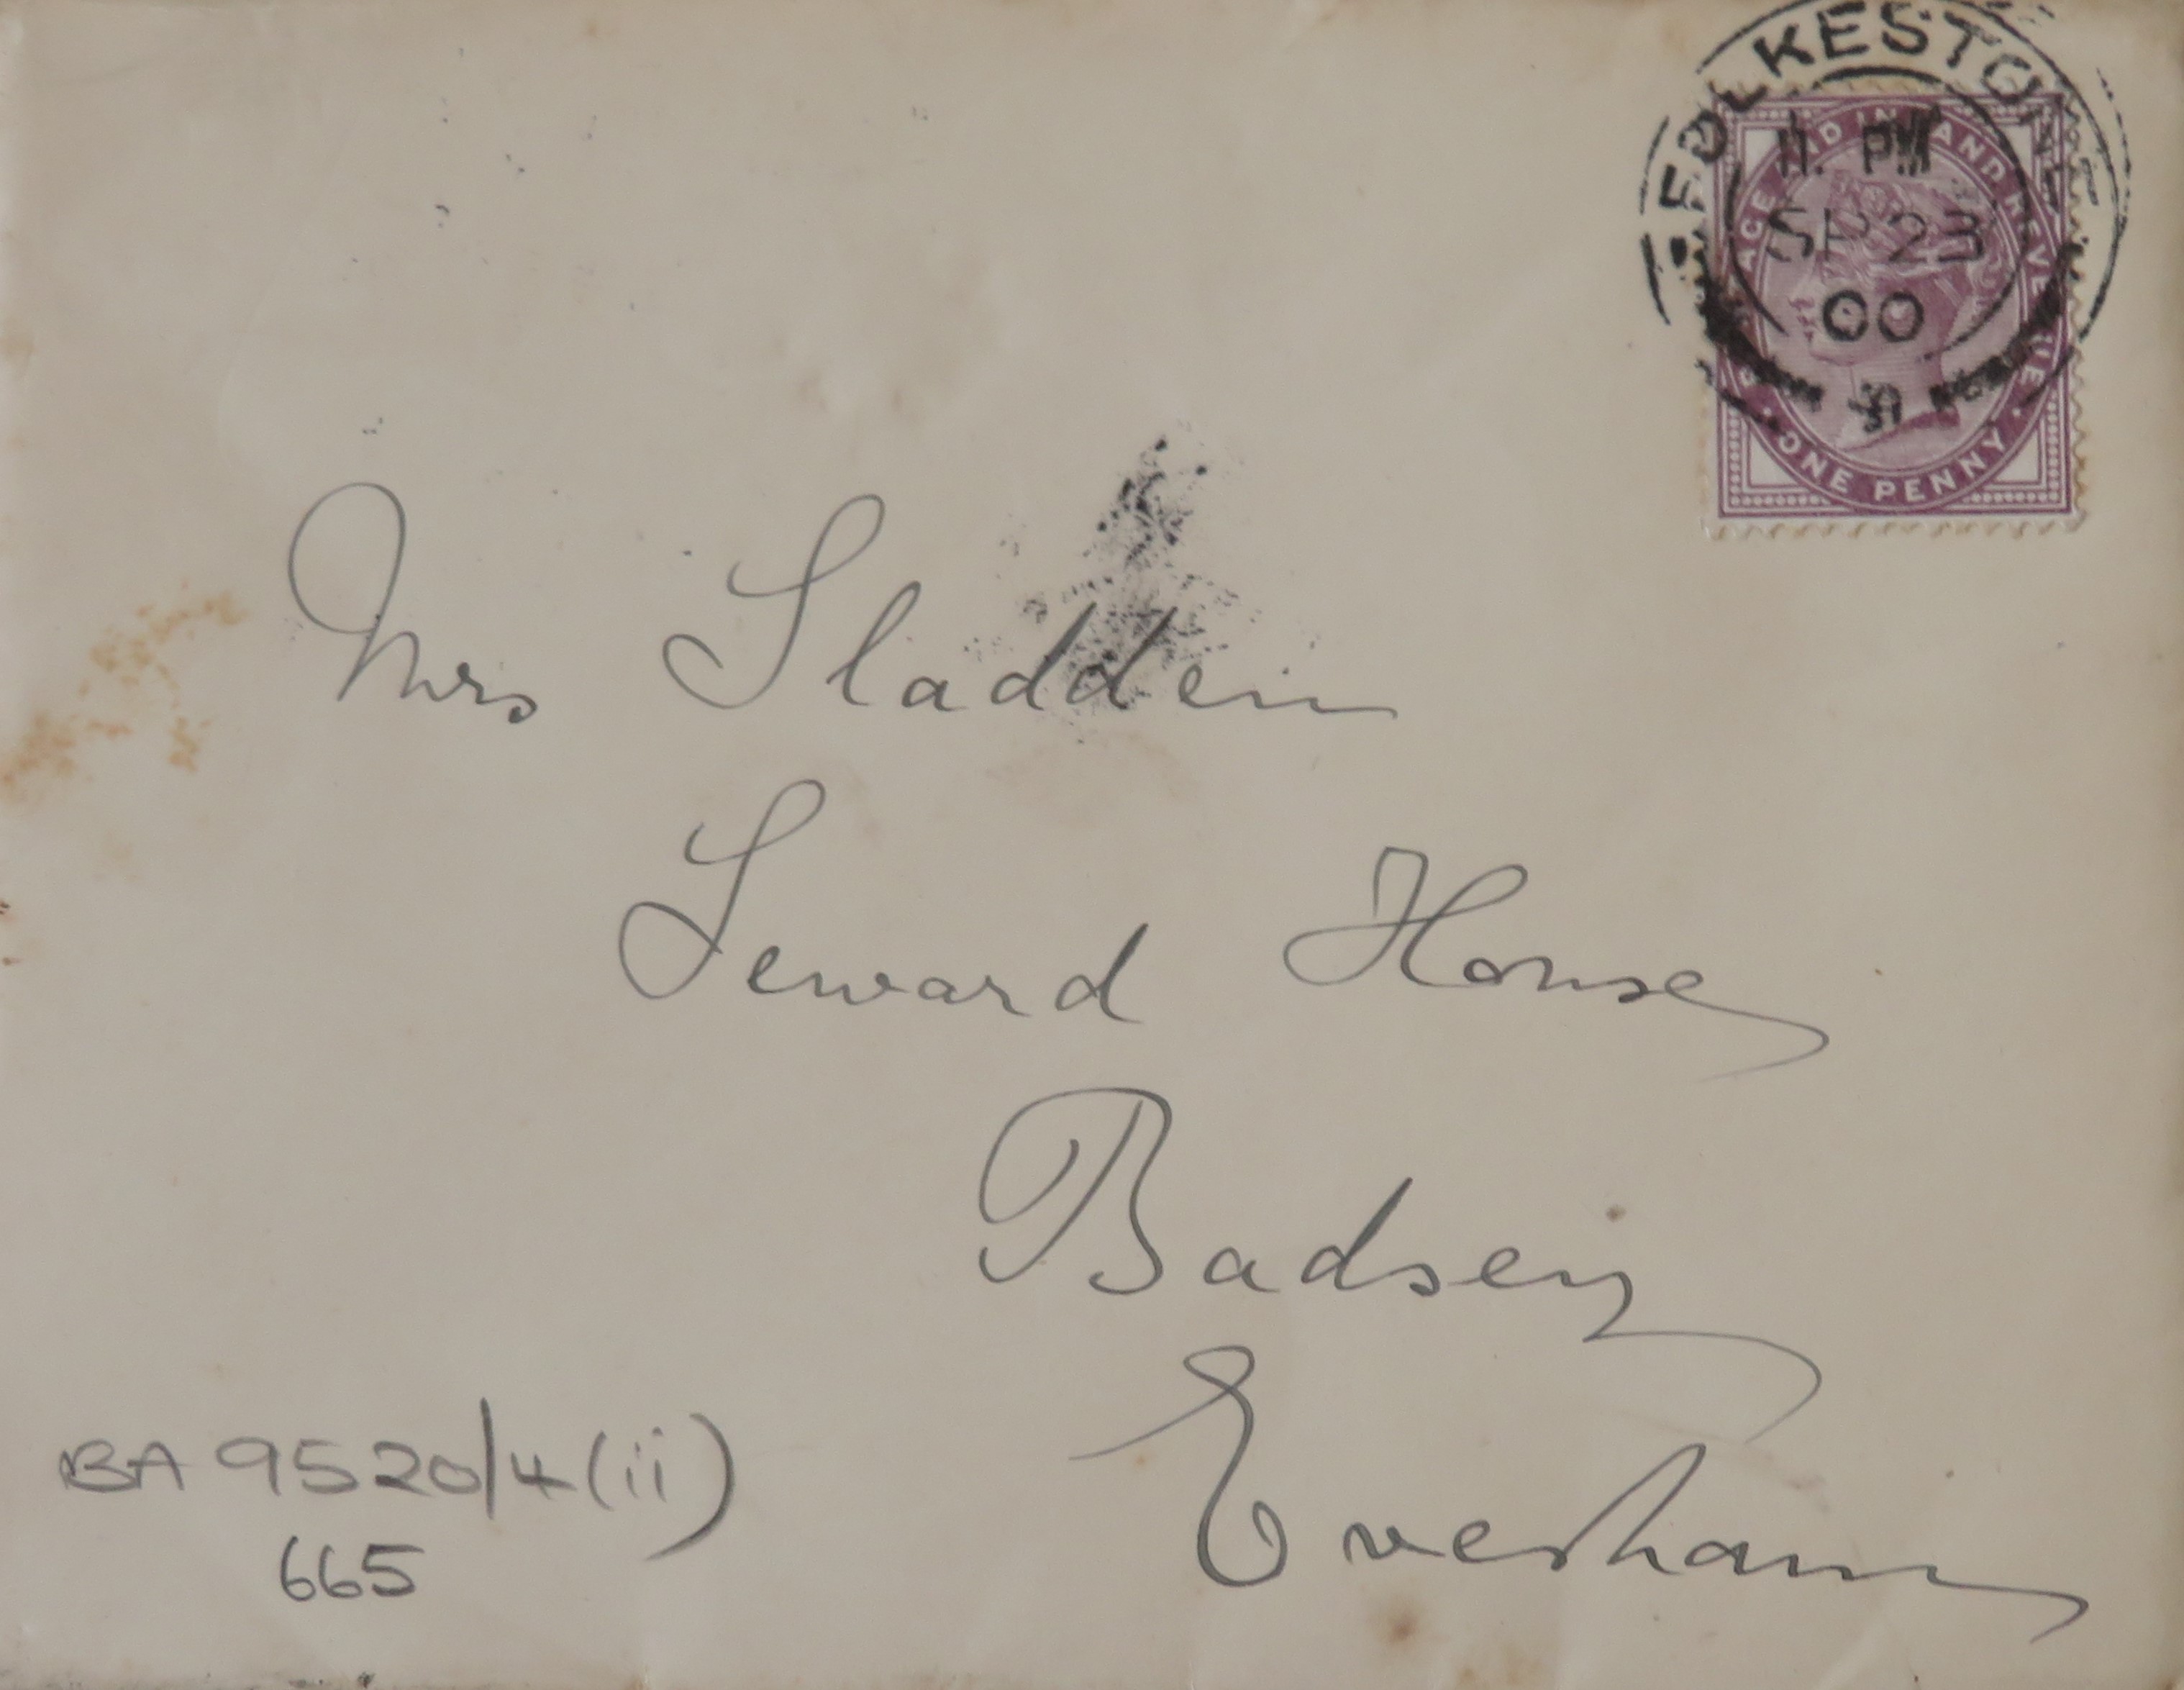 FOLKESTONE
11. PM
SP 23
00
POSTAGE AND INLAND REVENUE
ONE PENNY
Mrs Sladden
Seward House
Badsey
Evesham
BA 9520/4(ii)
665